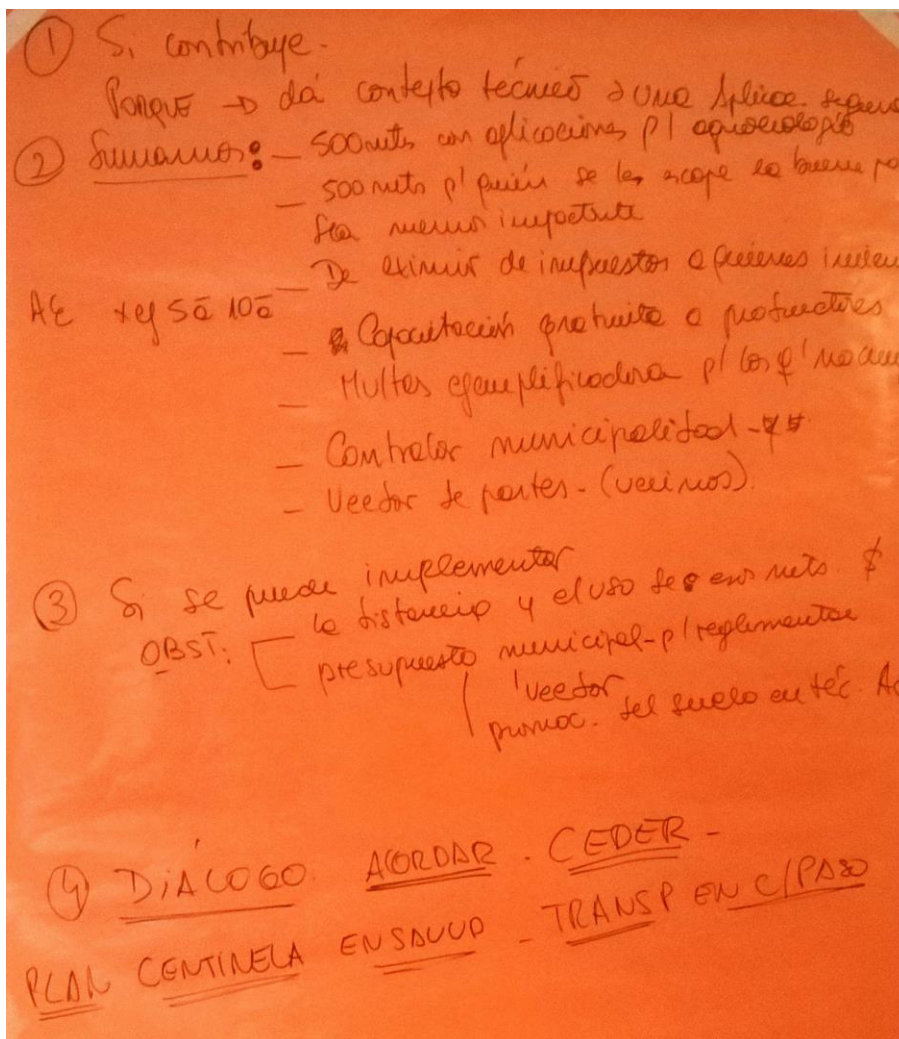 ① Si contribuye.
PORQUE → dá contexto técnico a una aplicac. segura
② Sumamos:
— 500 mts con aplicaciones p/ agroecología
— 500 mts p' quién se les escape la buena
sea menos impactante
— De eximir de impuestos a quienes
AE x ej 5ā 10ā
— Capacitación gratuita a productores
— Multas ejemplificadora p/ los q' no
— Contralor municipalidad -
— Veedor de partes - (vecinos).
③ Si se puede implementar
la distancia y el uso de esos mts. $
OBST: presupuesto municipal - p/ reglamentar
veedor
promoc. del suelo en téc.
④ DIÁLOGO. ACORDAR. CEDER -
PLAN CENTINELA EN SALUD - TRANSP EN C/PASO